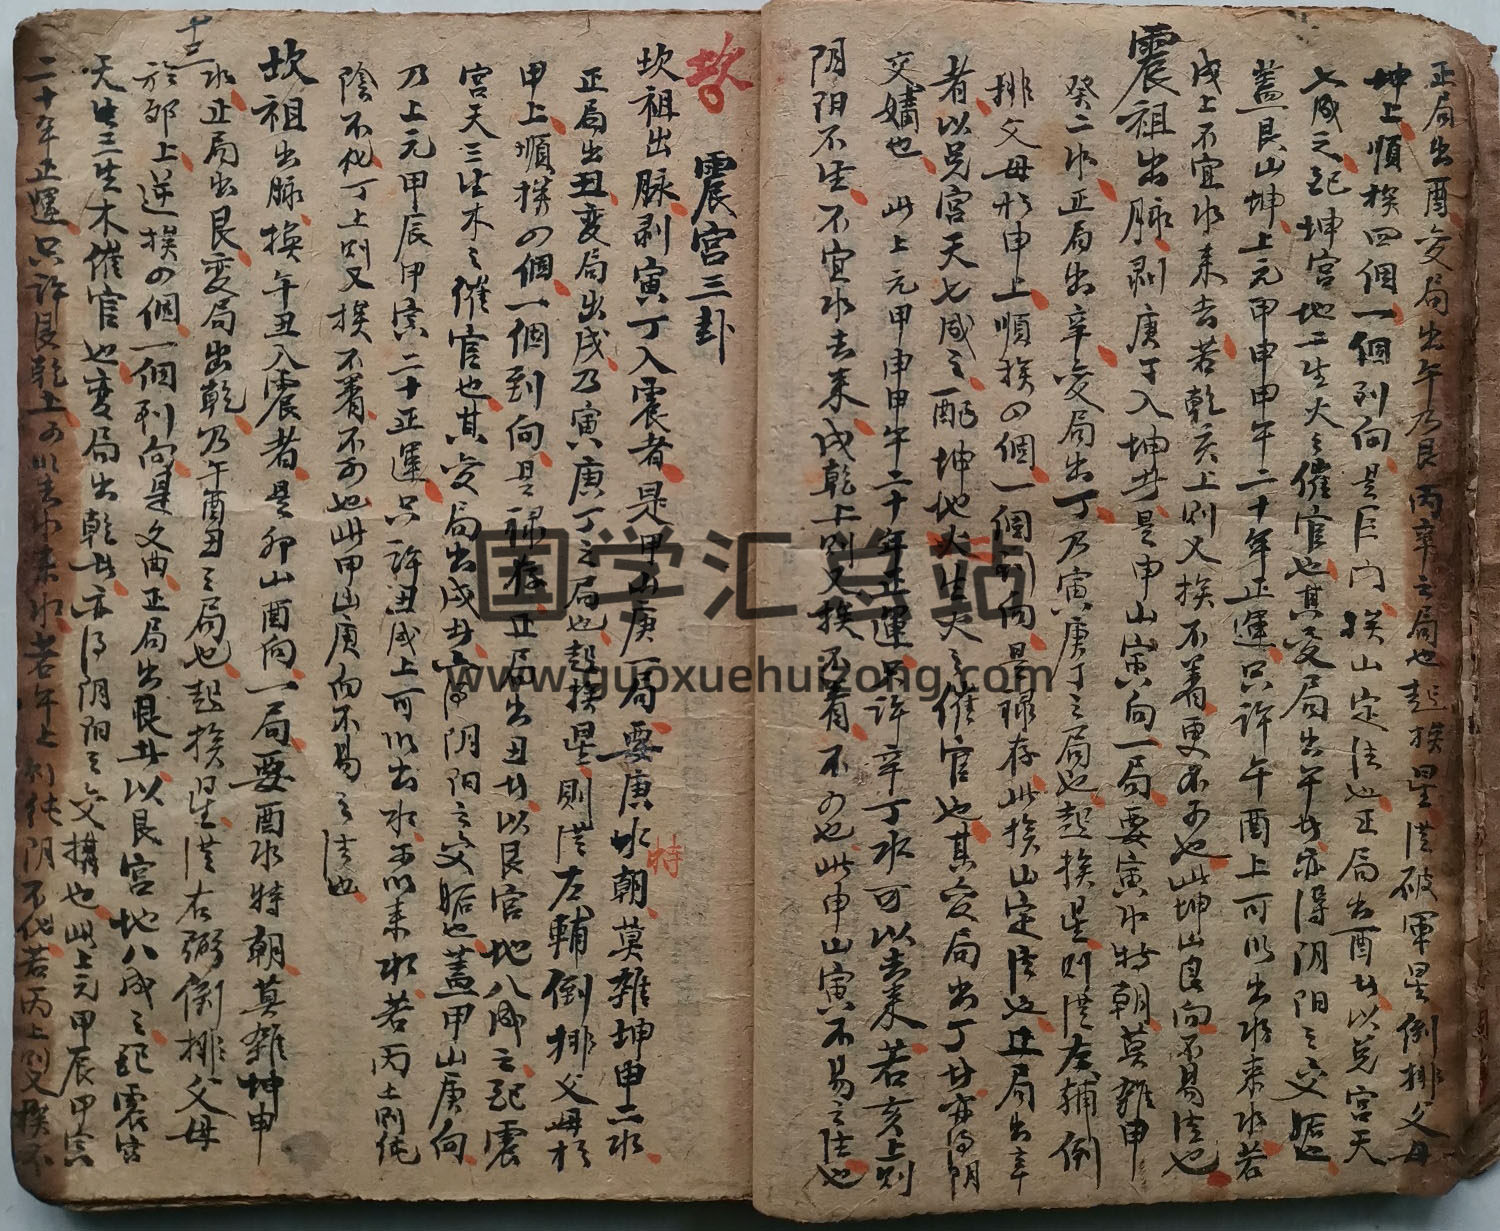 正局出酉变局出午乃艮丙辛之局也起挨星從破軍星倒排父母
坤上順挨四個一個到向是巨门挨山定法也正局出酉廿以兑宫天
七成之配坤宫地二生火之催官也其变局出午廿亦得阴阳之交姤也
蓋艮山坤上元甲申甲午二十年正運只許午酉上可以出水来水若
戌上不宜水来去若乾亥上则又挨不着更不可也此坤山艮向不易法也
震祖出脉剥庚丁入坤廿是申山寅向一局要寅水特朝莫雜申
癸二水正局出辛变局出丁乃寅庚丁之局也起挨星则從左辅倒
排父母於申上順挨四個一個到向是禄存此挨山定法也正局出辛
者以兑宫天七成之配坤地火生火之催官也其变局出丁廿亦得阴
交媾也此上元甲申甲午二十年正運只許辛丁水可以去来若亥上则
阴阳不生不宜水去来戌乾上则又挨不着不可也此申山寅不易之法也
坎
震宫三卦
坎祖出脉剥寅丁入震者是甲山庚一局要庚水朝莫雜坤申二水
特
正局出丑变局出戌乃寅庚丁之局也起挨星则從左輔倒排父母於
甲上順挨四個一個到向是禄存正局出丑廿以艮宫地八成之配震
宫天三生木之催官也其变局出戌廿亦得阴阳之交姤也蓋甲山庚向
乃上元甲辰甲寅二十正運只許丑戌上可以出水不以来水若丙上则纯
陰不化丁上则又挨不着不可也此甲山庚向不易之法也
坎祖出脉挨午丑入震者是卯山酉向一局要酉水特朝莫雜坤申
水正局出艮变局出乾乃午酉丑之局也起挨星從右弼倒排父母
於卯上逆挨四個一個到向是文曲正局出艮廿以艮宫地八成之配震宫
天生三生木催官也变局出乾廿亦得阴阳之交媾也此上元甲辰甲寅
二十年正運只許艮乾上可以去水来水若午上则纯阴不化若丙上则又挨不
十二
国学汇总站
www.guoxuehuizong.com